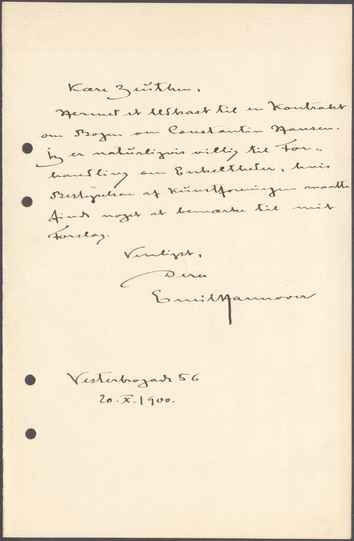 Kære Zeuthen.
Hermed et Udkast til en Kontrakt
om Bogen om Constantin Hansen.
Jeg er naturligvis villig til For-
handling om Enkeltheder, hvis
Bestyrelsen af Kunstforeningen maatte
finde noget at bemærke til mit
Forslag.
Venligst,
Deres
Emil Hannover
Vesterbrogade 56
20.X.1900.